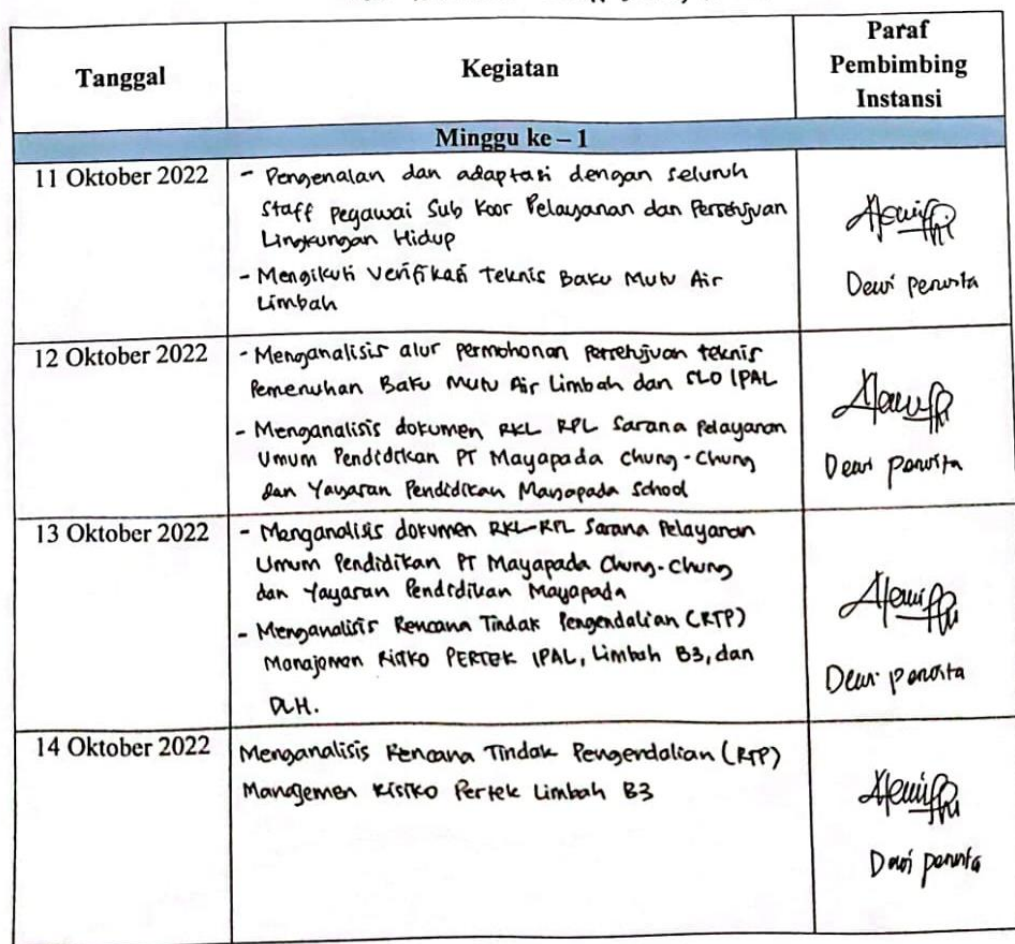 Tanggal
Kegiatan
Paraf
Pembimbing
Instansi
Minggu ke – 1
11 Oktober 2022
- Pengenalan dan adaptasi dengan seluruh
Staff pegawai Sub Koor Pelayanan dan Persetujuan
Lingkungan Hidup
- Mengikuti Verifikasi Teknis Baku Mutu Air
Limbah
Dewi perwita
12 Oktober 2022
- Menganalisis alur permohonan persetujuan teknis
Pemenuhan Baku Mutu Air Limbah dan SLO IPAL
- Menganalisis dokumen RKL RPL Sarana Pelayanan
Umum Pendidikan PT Mayapada Chung-Chung
dan Yayasan Pendidikan Mayapada School
Dewi perwita
13 Oktober 2022
- Menganalisis dokumen RKL-RPL Sarana Pelayanan
Umum Pendidikan PT Mayapada Chung-Chung
dan Yayasan Pendidikan Mayapada
- Menganalisis Rencana Tindak Pengendalian (RTP)
Manajemen Risiko PERTEK IPAL, Limbah B3, dan
DLH.
Dewi perwita
14 Oktober 2022
Menganalisis Rencana Tindak Pengendalian (RTP)
Manajemen Risiko Pertek Limbah B3
Dewi perwita